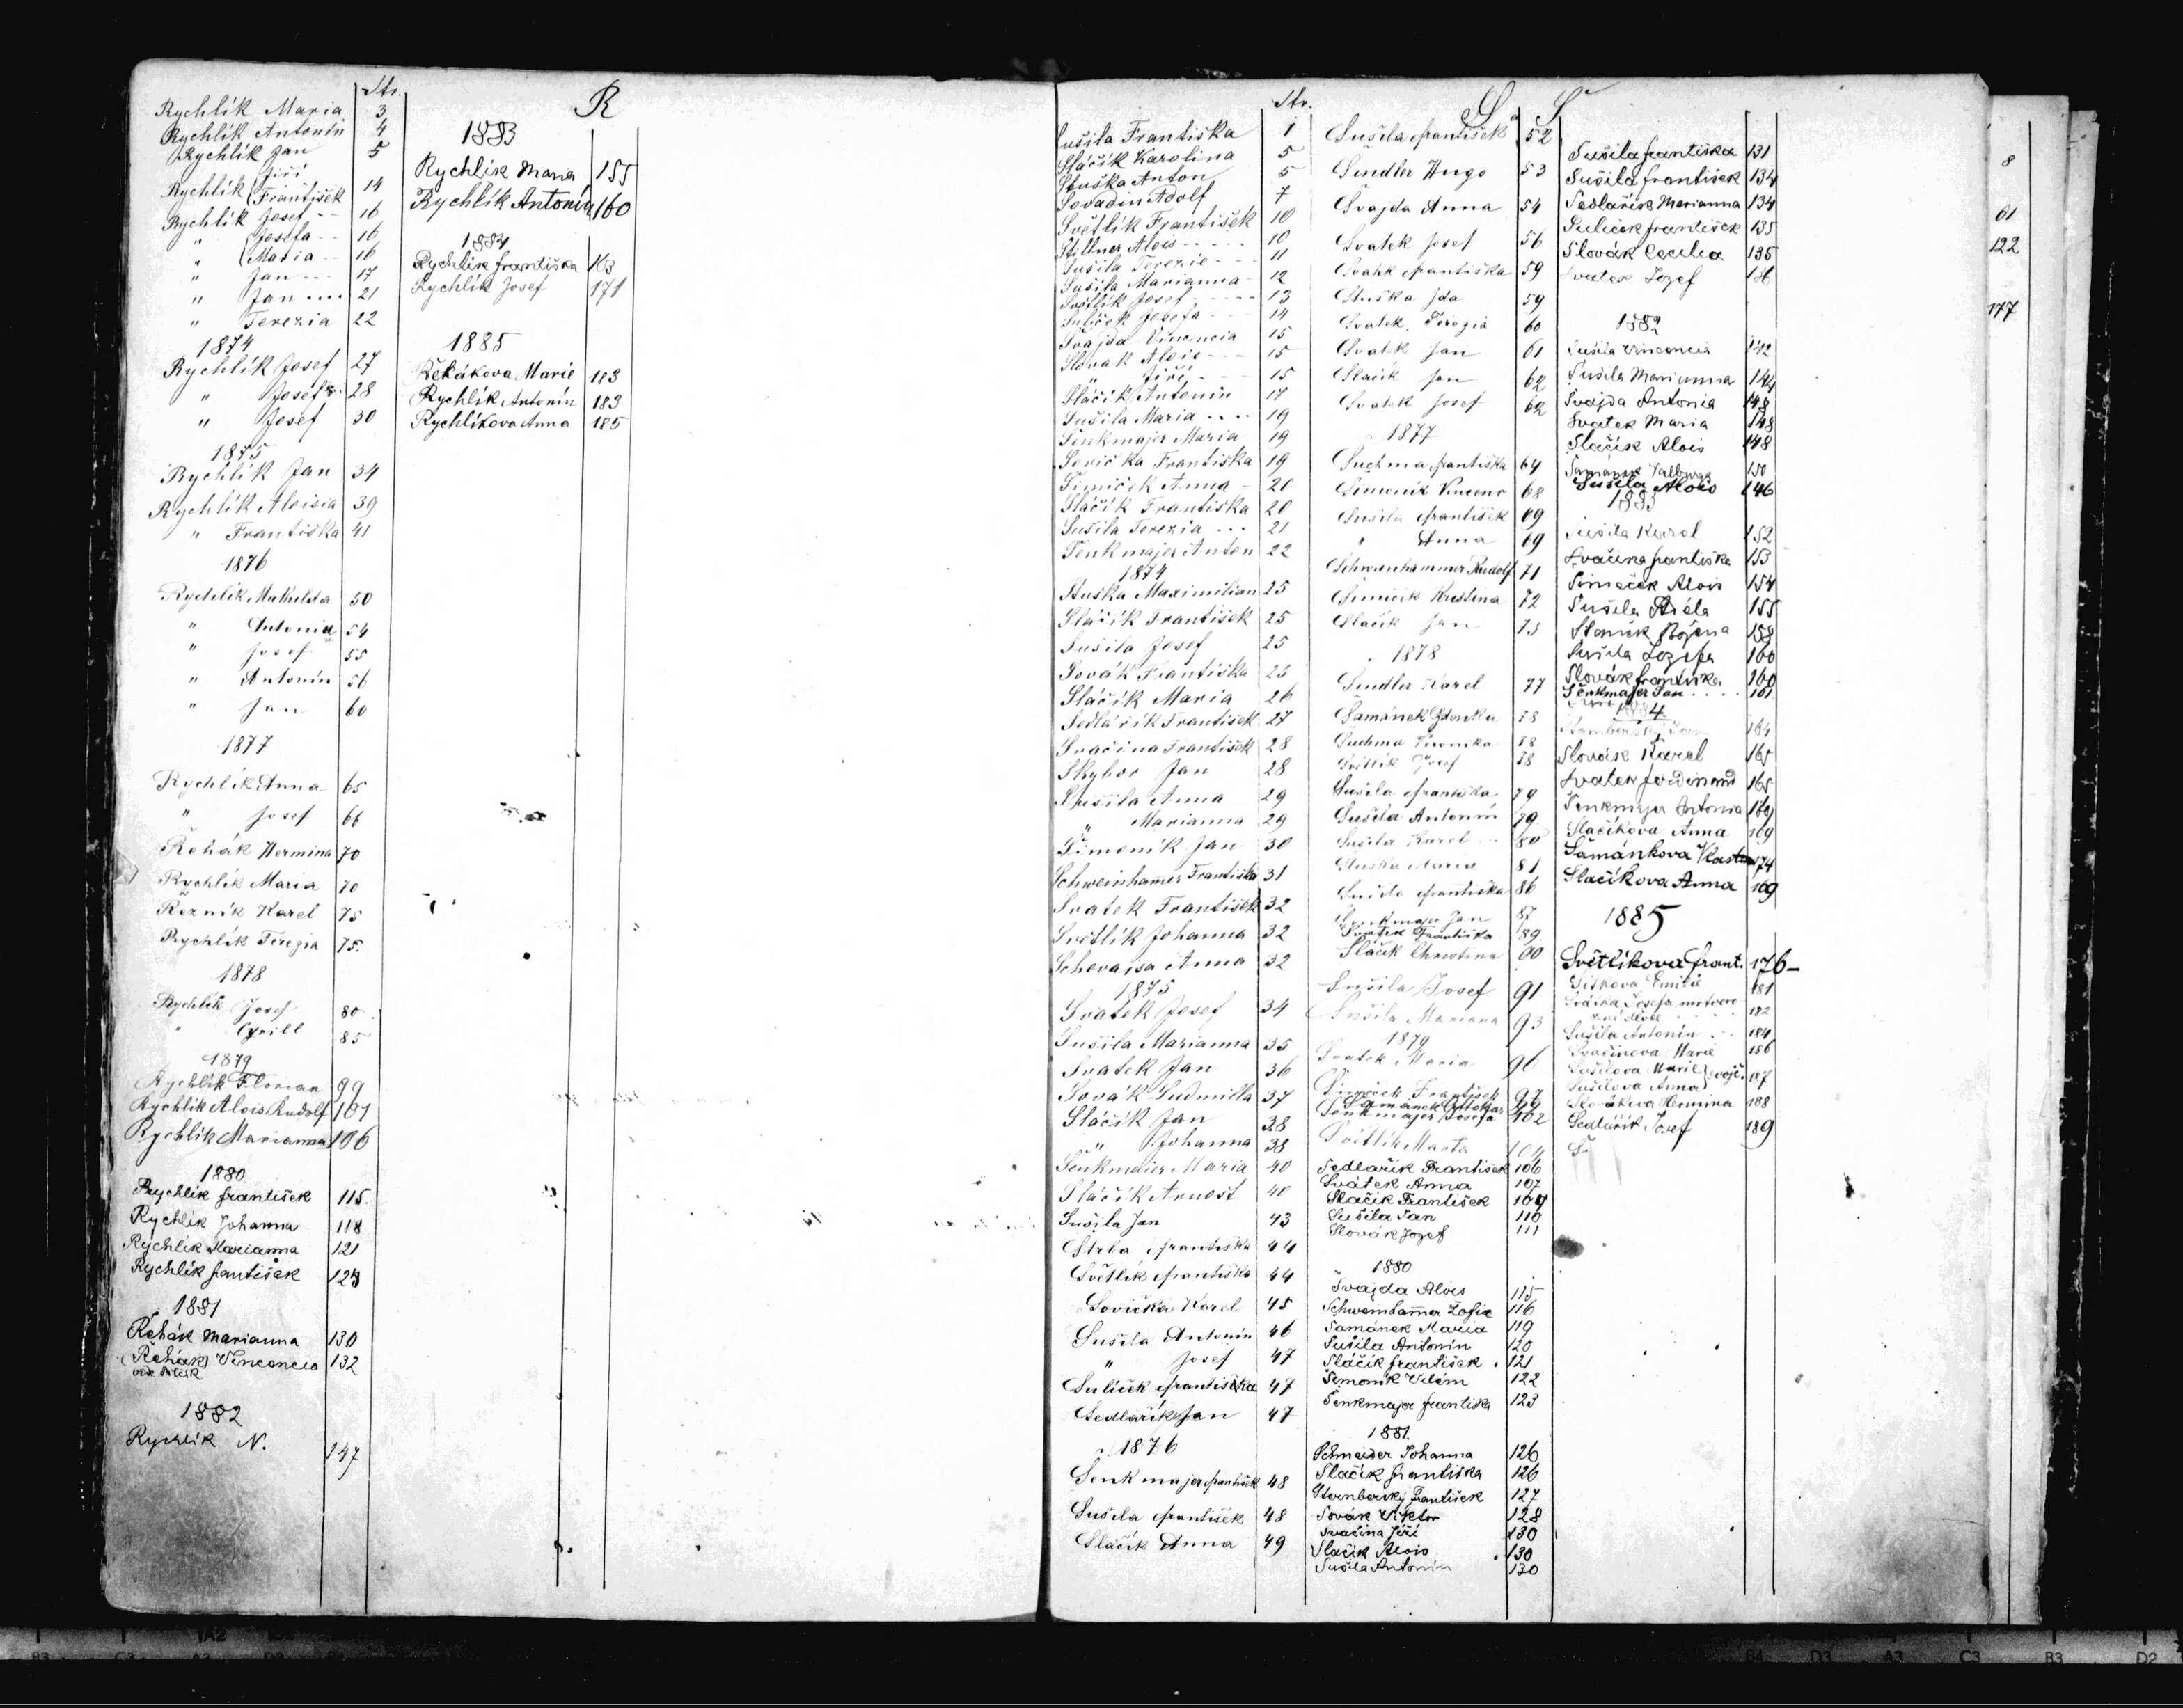 Str.
R
Rychlík Maria 3
Rychlík Antonín 4
Rychlík Jan 5
Jiří
Rychlík František 14
Rychlík Josef 16
" Josefa 16
" Maria 16
" Jan 17
" Jan 21
" Terezia 22
1874
Rychlík Josef 27
" Josef 28
" Josef 30
1875
Rychlík Jan 34
Rychlík Aloisia 39
" Františka 41
1876
Rychlík Mathilda 50
" Antonia 54
" Josef 55
" Antonín 56
" Jan 60
1877
Rychlík Anna 65
" Josef 66
Řehák Hermina 70
Rychlík Maria 70
Řezník Karel 75
Rychlík Terezia 75.
1878
Rychlík Josef 80
" Cyrill 85
1879
Rychlík Florian 99
Rychlík Alois Rudolf 101
Rychlík Marianna 106
1880
Rychlík František 115.
Rychlík Johanna 118
Rychlík Marianna 121
Rychlík František 124
1881
Řehák Marianna 130
(Řehák) Vincencia 132
1882
Rychlík N. 147
1883
Rychlík Maria 155
Rychlík Antonín 160
1884
Rychlík Františka 163
Rychlík Josef 171
1885
Řehákova Marie 183
Rychlík Antonín 183
Rychlíkova Anna 185
Str.
S Š
Sušila Františka 1
Sláčík Karolina 5
Stuška Anton 5
Sovadin Adolf 7
Světlík František 10
Stillner Alois 10
Sušila Terezie 11
Sušila Marianna 12
Světlík Josef 13
Sulíček Josefa 14
Švajda Vincencia 15
Slovak Alois 15
" Jiří 15
Sláčík Antonin 17
Sušila Maria 19
Šenkmajer Maria 19
Sovička Františka 19
Šimíček Anna 20
Sláčík Františka 20
Sušila Terezia 21
Šenkmajer Anton 22
1874
Stuška Maximilian 25
Sláčík František 25
Sušila Josef 25
Sovák Františka 25
Sláčík Maria 26
Sedlářík František 27
Svačina František 28
Skybor Jan 28
Sušila Anna 29
" Marianna 29
Šimoník Jan 30
Schweinhamer Františka 31
Svatek František 32
Světlík Johanna 32
Schovajsa Anna 32
1875
Svatek Josef 34
Sušila Marianna 35
Svatek Jan 36
Sovák Ludmilla 37
Sláčík Jan 38
" Johanna 38
Šenkmaier Maria 40
Sláčík Arnošt 40
Sušila Jan 43
Strba Františka 44
Světlík Františka 44
Sovička Karel 45
Sušila Antonín 46
" Josef 47
Sulíček Františka 47
Sedlařík Jan 47
1876
Šenkmajer František 48
Sušila František 48
Sláčík Anna 49
Sušila František 52
Šindler Hugo 53
Švajda Anna 54
Svatek Josef 56
Svatek Františka 59
Stuška Ida 59
Svatek Terezia 60
Svatek Jan 61
Slačík Jan 62
Svatek Josef 62
1877
Suchma Františka 64
Šimoník Vincenc 68
Sušila František 69
" Anna 69
Schweinhammer Rudolf 71
Šimíček Kristina 72
Slačík Jan 73
1878
Šindler Karel 77
Šamánek Zdenka 78
Suchma Veronika 78
Světlík Josef 78
Sušila Františka 79
Sušila Antonín 79
Sušila Karel 80
Stuška Maria 81
Sušila Františka 86
Šenkmajer Jan 87
Svatek Františka 89
Sláčik Christina 90
Sušila Josef 91
Sušila Mariana 93
1879
Svatek Maria 96
Šimíček František 97
Šamánek Ottokar 99
Šenkmajer Josefa 102
Světlík Marta 104
Sedlařík František 106
Svátek Anna 107
Slačík František 109
Sušila Jan 110
Slovák Jozef 111
1880
Švajda Alois 115
Schweinhamer Žofie 116
Šamánek Maria 119
Sušila Antonín 120
Sláčík František 121
Šimoník Vilém 122
Šenkmajer Františka 123
1881.
Schneider Johanna 126
Slačík Františka 126
Sternberský František 127
Sovák Viktor 128
Svačina Jiří 130
Slačík Alois 130
Sušila Antonín 130
Sušila Františka 131
Sušila František 134
Sedlařík Marianna 134
Sulíček František 135
Slovák Cecilia 135
Svatek Jozef 136
1882
Sušila Vincencia 142
Sušila Marianna 144
Švajda Antonia 148
Svatek Maria 148
Slačík Alois 148
Šamánek Valburga 150
Sušila Alois 146
1883
Sušila Karel 152
Svačina Františka 153
Šimíček Alois 154
Sušila Adéla 155
Staněk Božena 158
Sušila Jozefa 160
Slovák Františka 160
Šenkmajer Jan 161
1884
Jan 164
Slovák Karel 165
Svatek Ferdinand 165
Šenkmajer Antonia 169
Slačíkova Anna 169
Šamánkova Vlasta 174
Slačíkova Anna 169
1885
Světlíkova Frant. 176
Sitkova Emilie 181
182
Sušila Antonín 184
Svačinova Marie 186
Sušilova Marie
Sušilova Anna } dvojč. 187
Slovákova Hermina 188
Sedlářík Josef 189
S
8
61
122
177